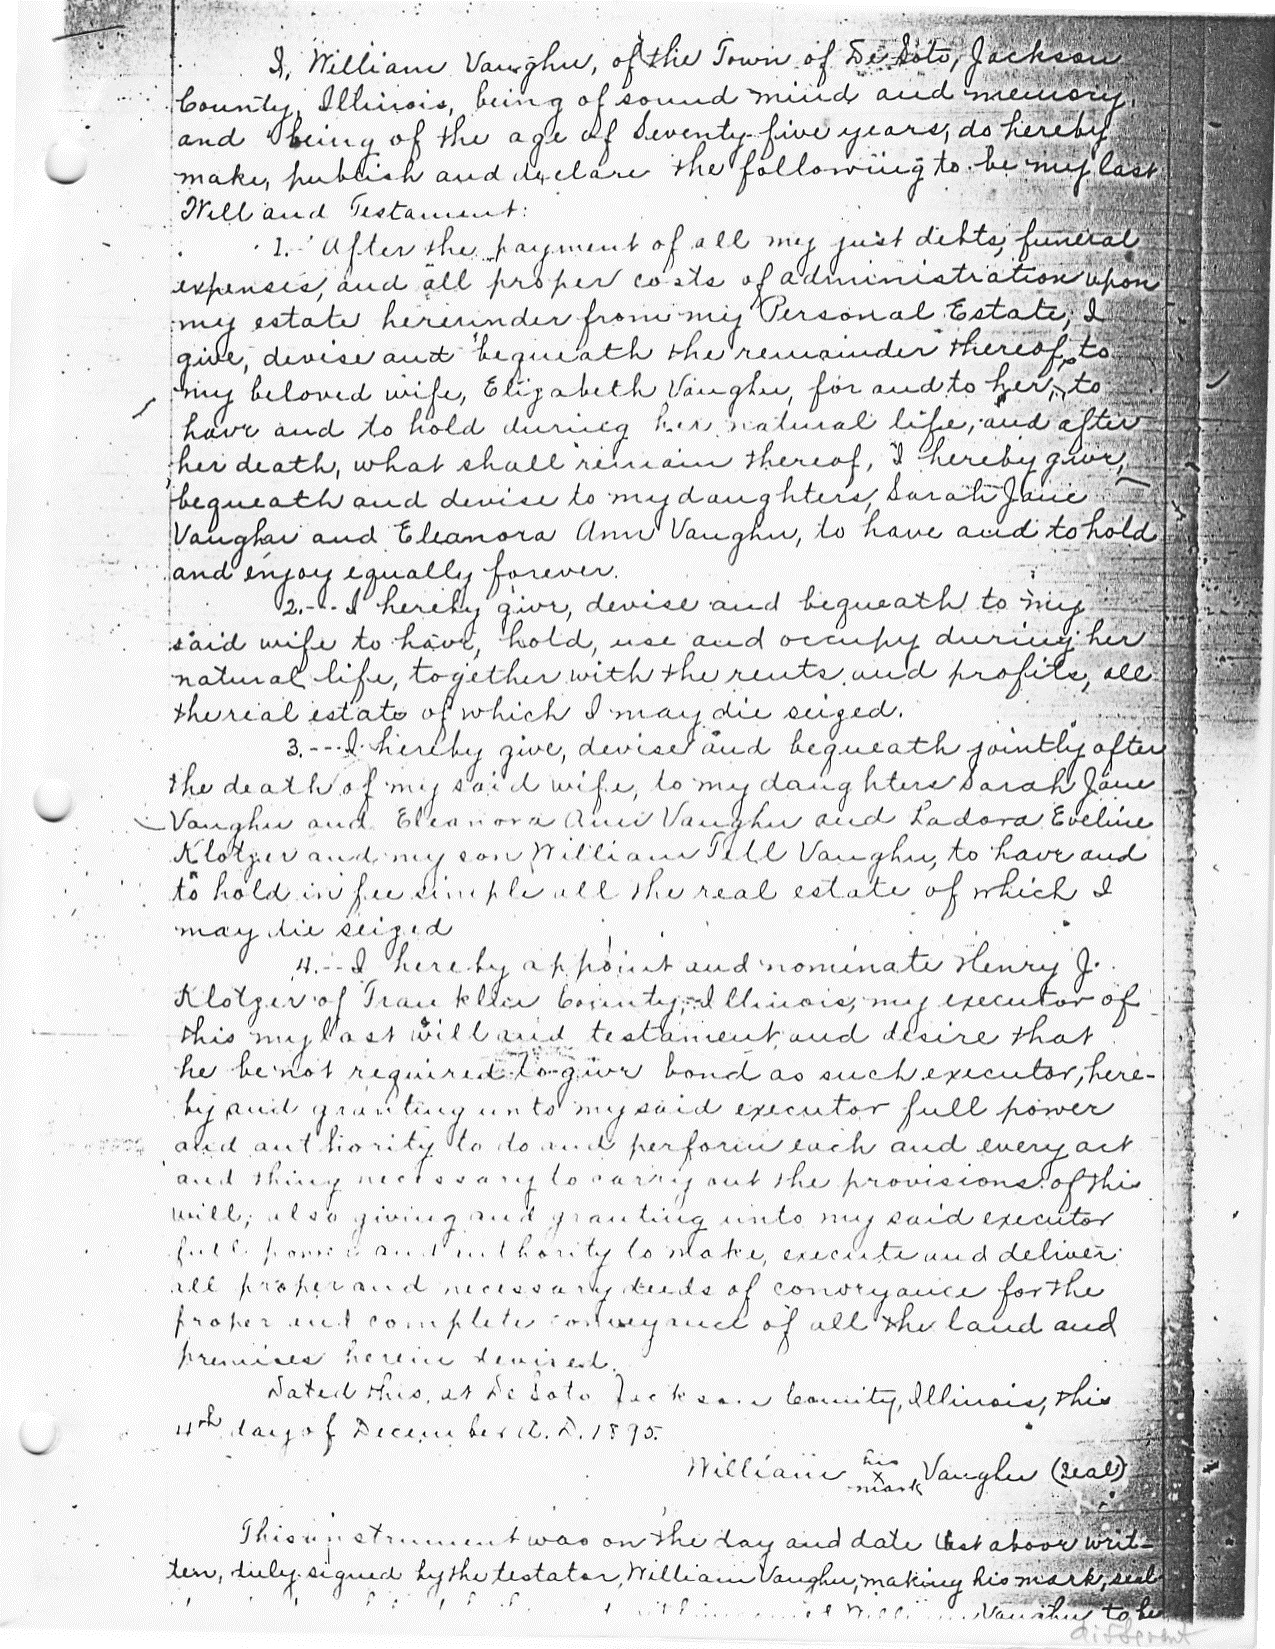 I, William Vaughn, of the Town of De Soto, Jackson
County, Illinois, being of sound mind and memory,
and being of the age of Seventy-five years, do hereby
make, publish and declare the following to be my last
Will and Testament:
1. After the payment of all my just debts, funeral
expenses, and all proper costs of administration upon
my estate hereunder from my Personal Estate, I
give, devise and bequeath the remainder thereof, to
my beloved wife, Elizabeth Vaughn, for and to her, to
have and to hold during her natural life, and after
her death, what shall remain thereof, I hereby give,
bequeath and devise to my daughters, Sarah Jane
Vaughn and Eleanora Ann Vaughn, to have and to hold
and enjoy equally forever.
2.--- I hereby give, devise and bequeath to my
said wife to have, hold, use and occupy during her
natural life, together with the rents and profits, all
the real estate of which I may die seized.
3.--- I hereby give, devise and bequeath jointly after
the death of my said wife, to my daughters Sarah Jane
Vaughn and Eleanora Ann Vaughn and Ladora Eveline
Klotzer and my son William Tell Vaughn, to have and
to hold in fee simple all the real estate of which I
may die seized
4.-- I hereby appoint and nominate Henry J.
Klotzer of Franklin County, Illinois, my executor of
this my last will and testament and desire that
he be not required to give bond as such executor, here-
by and granting unto my said executor full power
and authority to do and perform each and every act
and thing necessary to carry out the provisions of this
will; also giving and granting unto my said executor
full power and authority to make, execute and deliver
all proper and necessary deeds of conveyance for the
proper and complete conveyance of all the land and
premises herein devised.
Dated this, at De Soto Jackson County, Illinois, this
4th day of December A. D. 1895.
William his x mark Vaughn (Seal)
This instrument was on the day and date last above writ-
ten, duly signed by the testator, William Vaughn, making his mark, seal
Vaughn to be
different